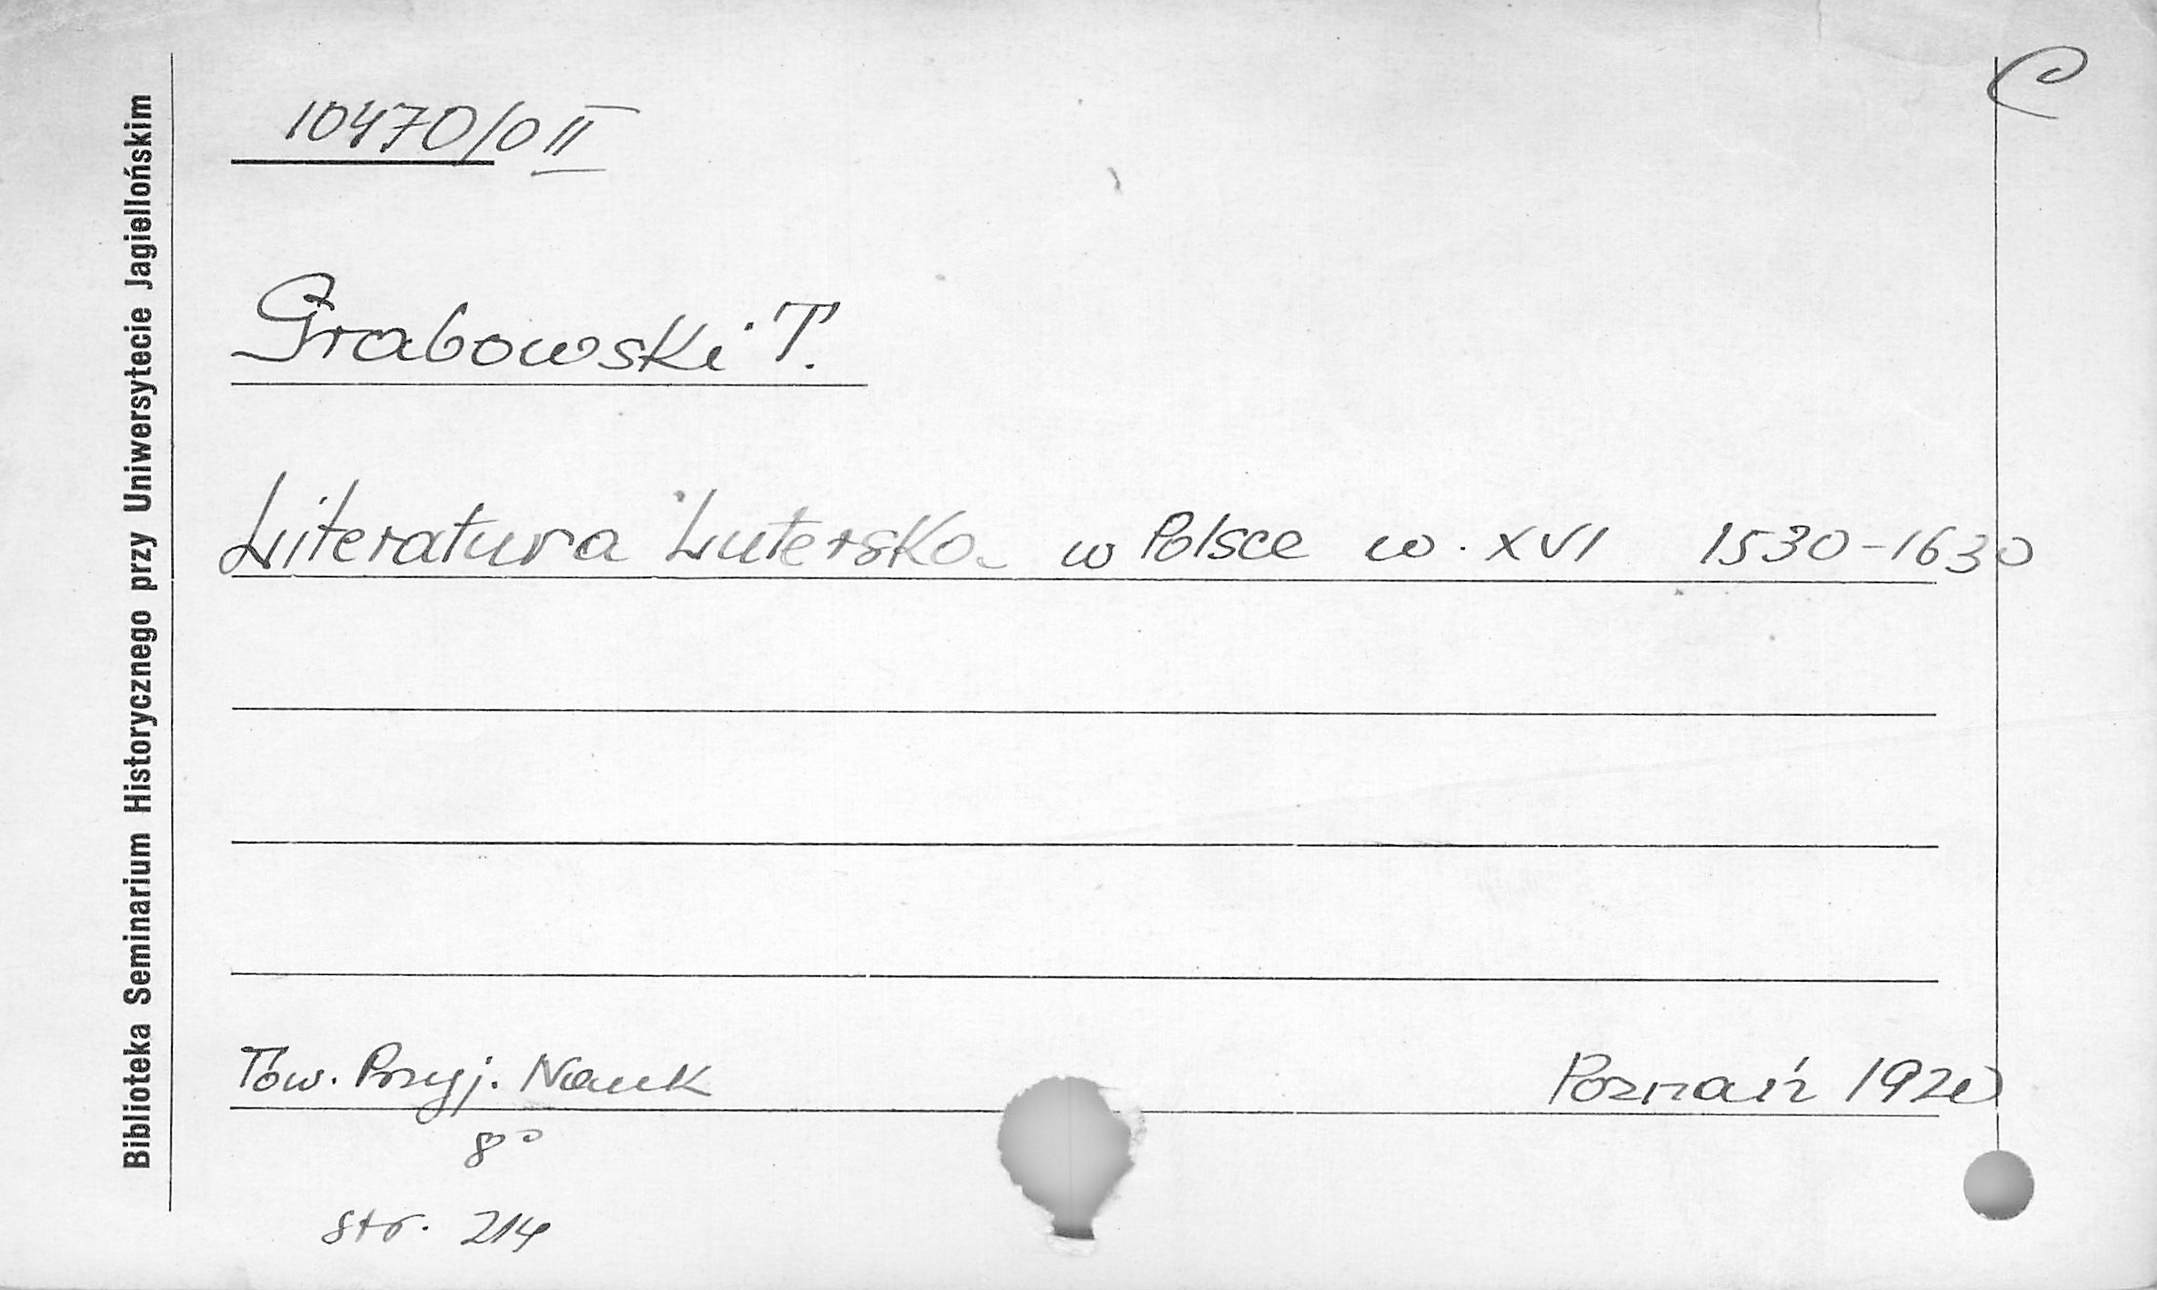 Biblioteka Seminarium Historycznego przy Uniwersytecie Jagiellońskim
C
10470/0 II
Grabowski T.
Literatura Luterska w Polsce w. XVI 1530-1630
Tow. Przyj. Nauk Poznań 1920
8°
str. 214